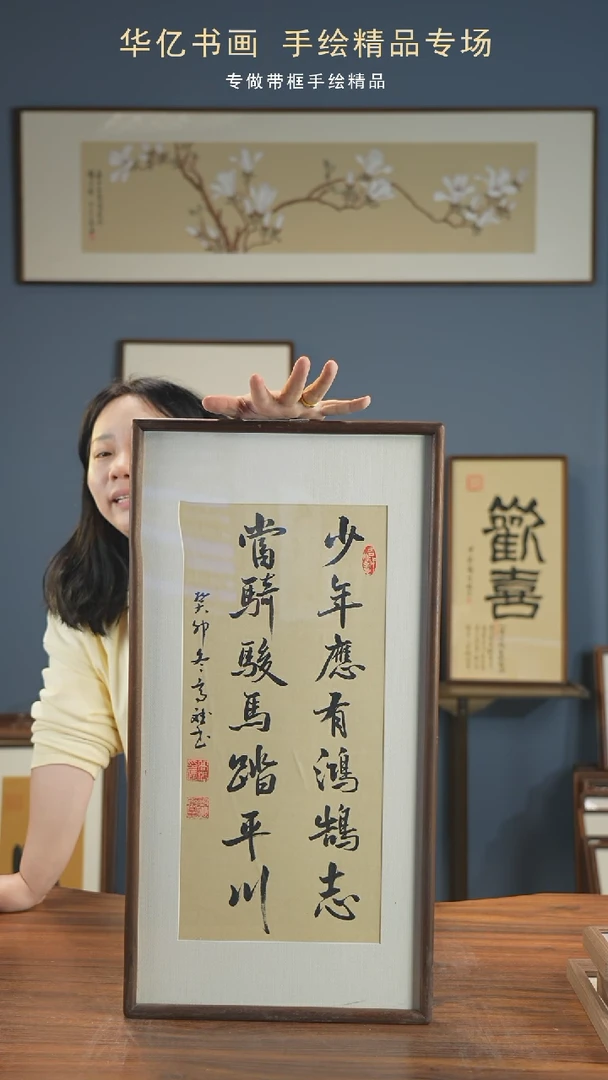 华亿书画 手绘精品专场
专做带框手绘精品
少年應有鴻鵠志
當騎駿馬踏平川
癸卯冬
歡喜